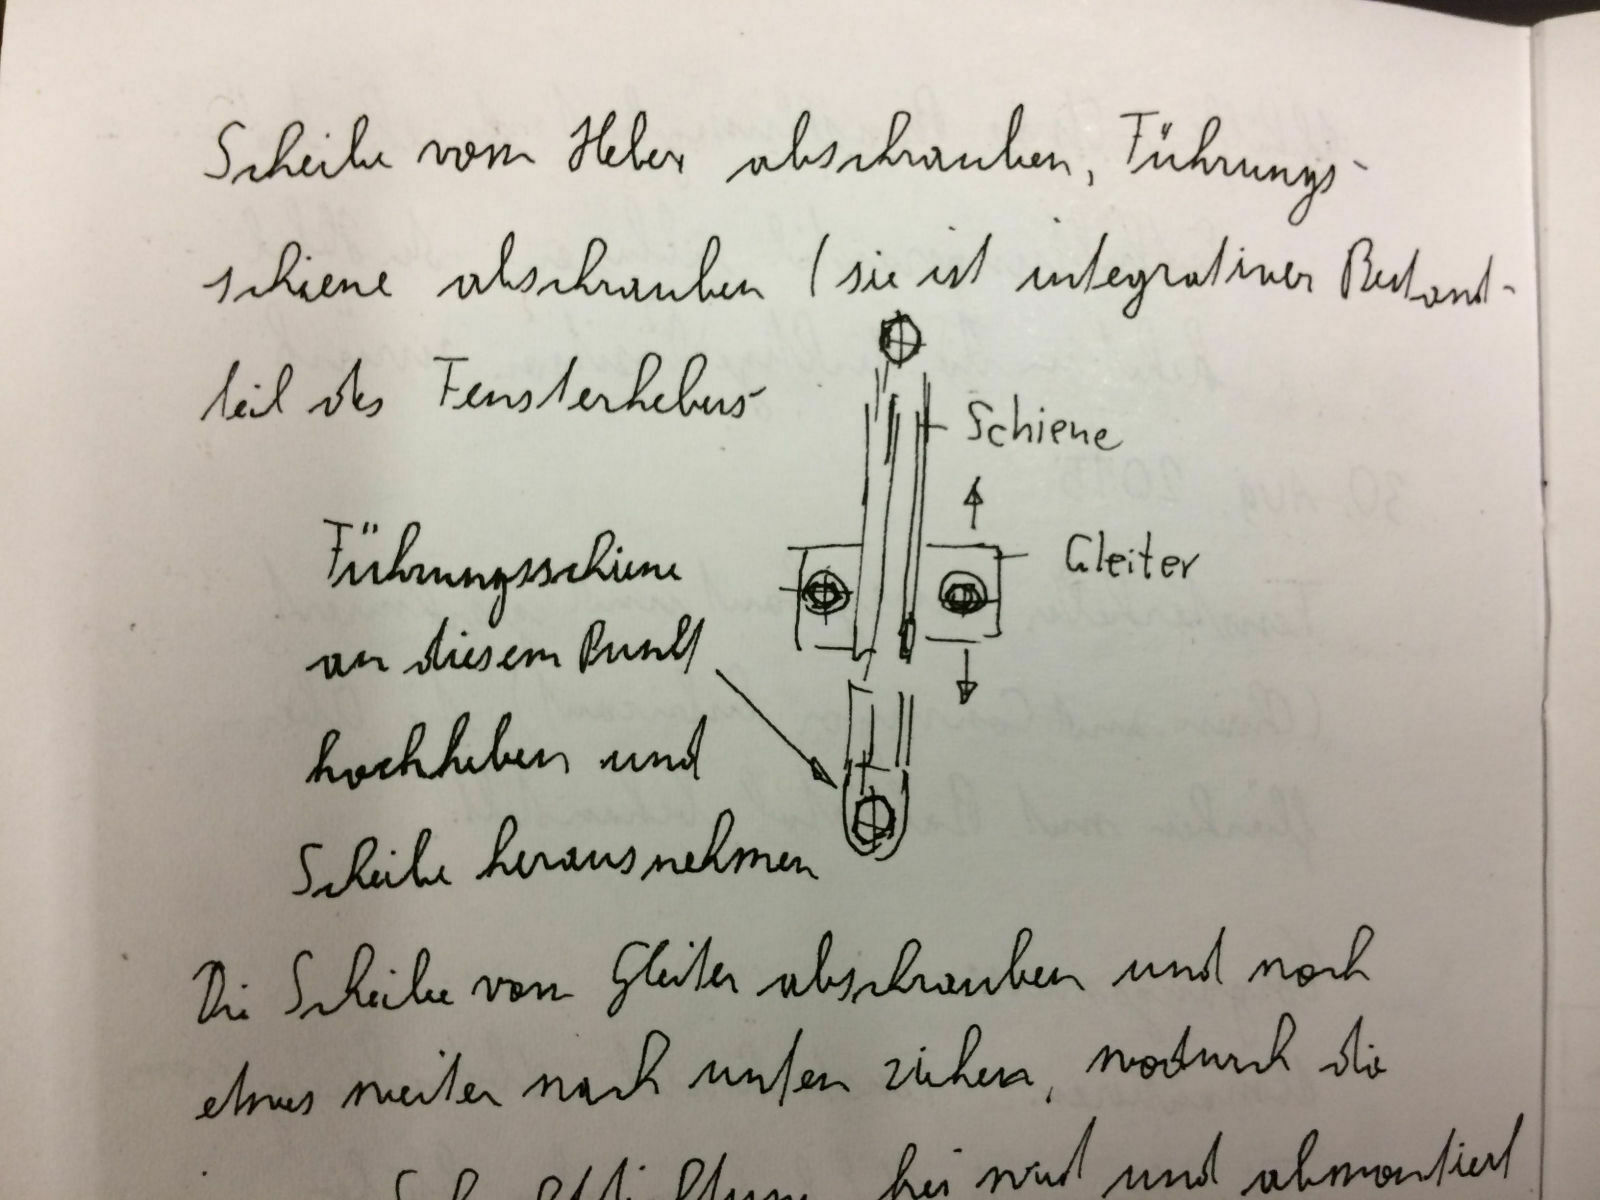 Scheibe vom Heber abschrauben, Führungs-
schiene abschrauben (sie ist integrativer Bestand-
teil des Fensterhebers
Schiene
Gleiter
Führungsschiene
an diesem Punkt
hochheben und
Scheibe herausnehmen
Die Scheibe vom Gleiter abschrauben und noch
etwas weiter nach unten ziehen, wodurch die
frei wird und abmontiert